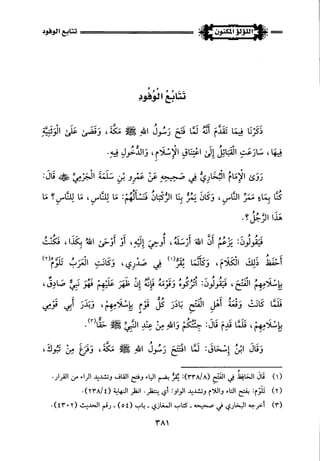 تتابع الوفود
اللؤلؤ المكنون
تَتَابُعُ الْوُفُودِ
ذَكَرْنَا فِيمَا تَقَدَّمَ أَنَّهُ لَمَّا فَتَحَ رَسُولُ اللهِ ﷺ مَكَّةَ، وَقَضَى عَلَى الْوَثَنِيَّةِ
فِيهَا، سَارَعَتِ الْقَبَائِلُ إِلَى اعْتِنَاقِ الْإِسْلَامِ، وَالدُّخُولِ فِيهِ.
رَوَى الْإِمَامُ الْبُخَارِيُّ فِي صَحِيحِهِ عَنْ عَمْرِو بْنِ سَلَمَةَ الْجَرْمِيِّ ﷺ قَالَ:
كُنَّا بِمَاءٍ مَمَرَّ النَّاسِ، وَكَانَ يَمُرُّ بِنَا الرُّكْبَانُ فَنَسْأَلُهُمْ: مَا لِلنَّاسِ، مَا لِلنَّاسِ؟ مَا
هَذَا الرَّجُلُ؟.
فَيَقُولُونَ: يَزْعُمُ أَنَّ اللهَ أَرْسَلَهُ، أَوْحَى إِلَيْهِ، أَوْ أَوْحَى اللهُ بِكَذَا، فَكُنْتُ
أَحْفَظُ ذَلِكَ الْكَلَامَ، وَكَأَنَّمَا يُقَرُّ(١) فِي صَدْرِي، وَكَانَتِ الْعَرَبُ تَلَوَّمُ(٢)
بِإِسْلَامِهِمُ الْفَتْحَ، فَيَقُولُونَ: اتْرُكُوهُ وَقَوْمَهُ فَإِنَّهُ إِنْ ظَهَرَ عَلَيْهِمْ فَهُوَ نَبِيٌّ صَادِقٌ،
فَلَمَّا كَانَتْ وَقْعَةُ أَهْلِ الْفَتْحِ بَادَرَ كُلُّ قَوْمٍ بِإِسْلَامِهِمْ، وَبَدَرَ أَبِي قَوْمِي
بِإِسْلَامِهِمْ، فَلَمَّا قَدِمَ قَالَ: جِئْتُكُمْ وَاللهِ مِنْ عِنْدِ النَّبِيِّ ﷺ حَقًّا(٣).
وَقَالَ ابْنُ إِسْحَاقَ: لَمَّا افْتَتَحَ رَسُولُ اللهِ ﷺ مَكَّةَ، وَفَرَغَ مِنْ تَبُوكَ،
(١) قال الحافظ في الفتح (٨/٣٣٤): يُقَرُّ: بضم الياء وفتح القاف وتشديد الراء من القرار.
(٢) تَلَوَّم: بفتح التاء واللام وتشديد الواو: أي تنتظر. انظر النهاية (٤/٢٣٨).
(٣) أخرجه البخاري في صحيحه - كتاب المغازي - باب (٥٤) - رقم الحديث (٤٣٠٢).
٣٨١